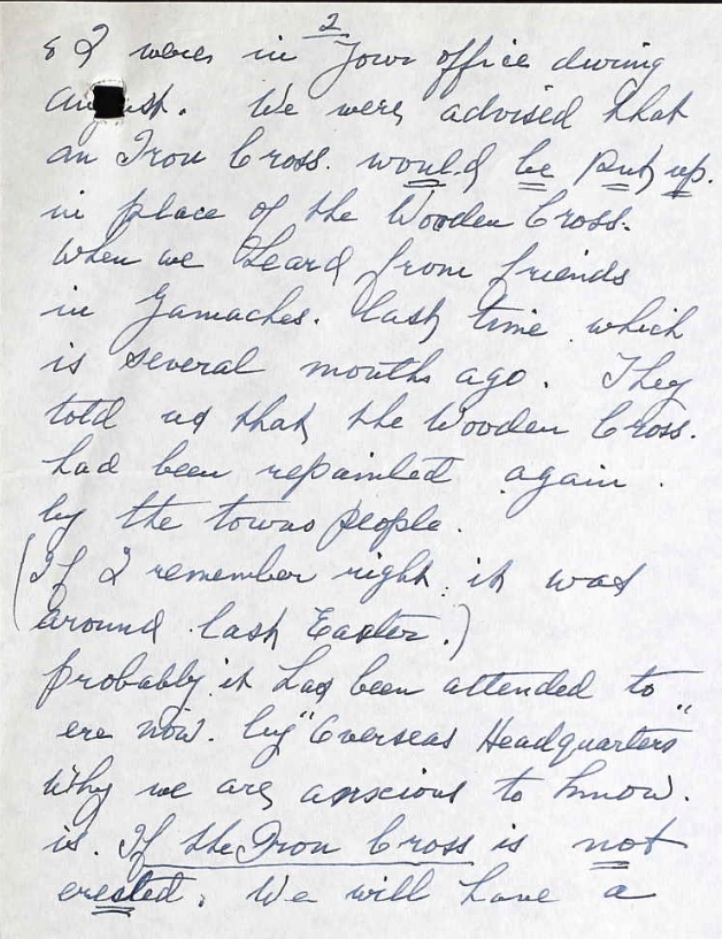 2
& I were in your office during
August. We were advised that
an Iron Cross. would be put up.
in place of the Wooden Cross.
When we heard from friends
in Gamaches. last time which
is several months ago. They
told us that the Wooden Cross.
had been repainted again.
by the towns people.
(If I remember right. it was
around last Easter.)
probably it has been attended to
ere now. by "Overseas Headquarters"
Why we are anxious to know.
is. If the Iron Cross is not
erected. We will have a